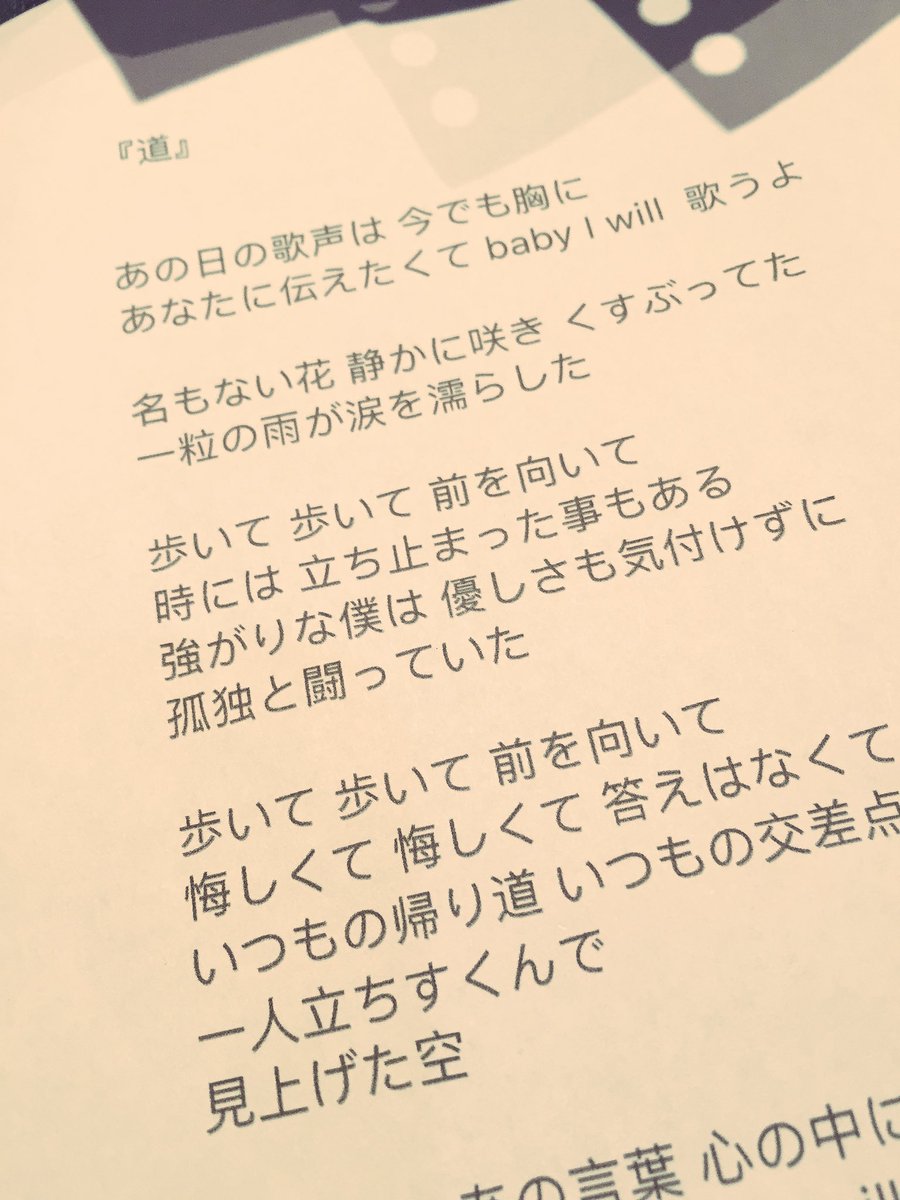 『道』
あの日の歌声は 今でも胸に
あなたに伝えたくて baby I will 歌うよ
名もない花 静かに咲き くすぶってた
一粒の雨が涙を濡らした
歩いて 歩いて 前を向いて
時には 立ち止まった事もある
強がりな僕は 優しさも気付けずに
孤独と闘っていた
歩いて 歩いて 前を向いて
悔しくて 悔しくて 答えはなくて
いつもの帰り道 いつもの交差点
一人立ちすくんで
見上げた空
あの言葉 心の中に